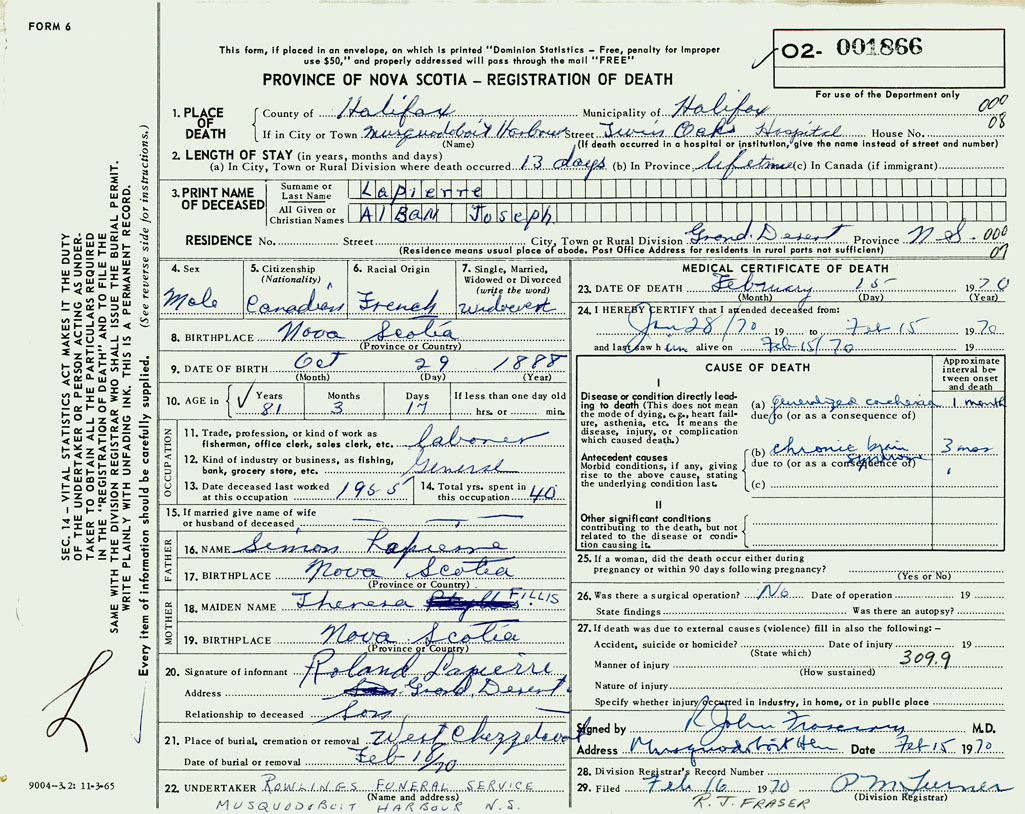 FORM 6
This form, if placed in an envelope, on which is printed "Dominion Statistics – Free, penalty for improper
use $50," and properly addressed will pass through the mail "FREE"
PROVINCE OF NOVA SCOTIA – REGISTRATION OF DEATH
02- 001866
For use of the Department only
000
08
1. PLACE OF DEATH
County of Halifax Municipality of Halifax
If in City or Town Musquodoboit Harbour Street Twin Oaks Hospital House No.
(Name) (If death occurred in a hospital or institution, give the name instead of street and number)
2. LENGTH OF STAY (in years, months and days)
(a) In City, Town or Rural Division where death occurred 13 days (b) In Province lifetime (c) In Canada (if immigrant)
3. PRINT NAME OF DECEASED
Surname or Last Name Lapierre
All Given or Christian Names Alban Joseph
RESIDENCE No. Street City, Town or Rural Division Grand Desert Province N.S. 000
07
(Residence means usual place of abode. Post Office Address for residents in rural parts not sufficient)
4. Sex Male
5. Citizenship (Nationality) Canadian
6. Racial Origin French
7. Single, Married, Widowed or Divorced (write the word) widower
8. BIRTHPLACE Nova Scotia
(Province or Country)
9. DATE OF BIRTH Oct 29 1888
(Month) (Day) (Year)
10. AGE in Years 81 Months 3 Days 17 If less than one day old hrs. or min.
OCCUPATION
11. Trade, profession, or kind of work as fisherman, office clerk, sales clerk, etc. Laborer
12. Kind of industry or business, as fishing, bank, grocery store, etc. General
13. Date deceased last worked at this occupation 1955
14. Total yrs. spent in this occupation 40
15. If married give name of wife or husband of deceased
FATHER
16. NAME Simon Lapierre
17. BIRTHPLACE Nova Scotia
(Province or Country)
MOTHER
18. MAIDEN NAME Theresa FILLIS
19. BIRTHPLACE Nova Scotia
(Province or Country)
20. Signature of informant Roland Lapierre
Address Grand Desert
Relationship to deceased Son
21. Place of burial, cremation or removal West Chezzetcook
Date of burial or removal Feb 18/70
22. UNDERTAKER ROWLINGS FUNERAL SERVICE
(Name and address)
MUSQUODOBOIT HARBOUR N.S.
MEDICAL CERTIFICATE OF DEATH
23. DATE OF DEATH February 15 1970
(Month) (Day) (Year)
24. I HEREBY CERTIFY that I attended deceased from:
Jan 28/70 19 to Feb 15 1970
and last saw him alive on Feb 15/70 19
CAUSE OF DEATH
Approximate interval between onset and death
I
Disease or condition directly leading to death (This does not mean the mode of dying, e.g., heart failure, asthenia, etc. It means the disease, injury, or complication which caused death.)
(a) generalized cachexia 1 month
due to (or as a consequence of)
Antecedent causes
Morbid conditions, if any, giving rise to the above cause, stating the underlying condition last.
(b) chronic brain syndrome 3 mos
due to (or as a consequence of)
(c)
II
Other significant conditions
contributing to the death, but not related to the disease or condition causing it.
25. If a woman, did the death occur either during
pregnancy or within 90 days following pregnancy?
(Yes or No)
26. Was there a surgical operation? No Date of operation 19
State findings Was there an autopsy?
27. If death was due to external causes (violence) fill in also the following: –
Accident, suicide or homicide? Date of injury 19
(State which) 309.9
Manner of injury
(How sustained)
Nature of injury
Specify whether injury occurred in industry, in home, or in public place
Signed by R John Fraser M.D.
Address Musquodoboit Hbr Date Feb 15 1970
28. Division Registrar's Record Number
29. Filed Feb 16 1970 P M Turner
(Division Registrar)
R.J. FRASER
SEC. 14 – VITAL STATISTICS ACT MAKES IT THE DUTY
OF THE UNDERTAKER OR PERSON ACTING AS UNDER-
TAKER TO OBTAIN ALL THE PARTICULARS REQUIRED
IN THE "REGISTRATION OF DEATH" AND TO FILE THE
SAME WITH THE DIVISION REGISTRAR WHO SHALL ISSUE THE BURIAL PERMIT.
WRITE PLAINLY WITH UNFADING INK. THIS IS A PERMANENT RECORD.
Every item of information should be carefully supplied. (See reverse side for instructions.)
9004-3.2: 11-3-65